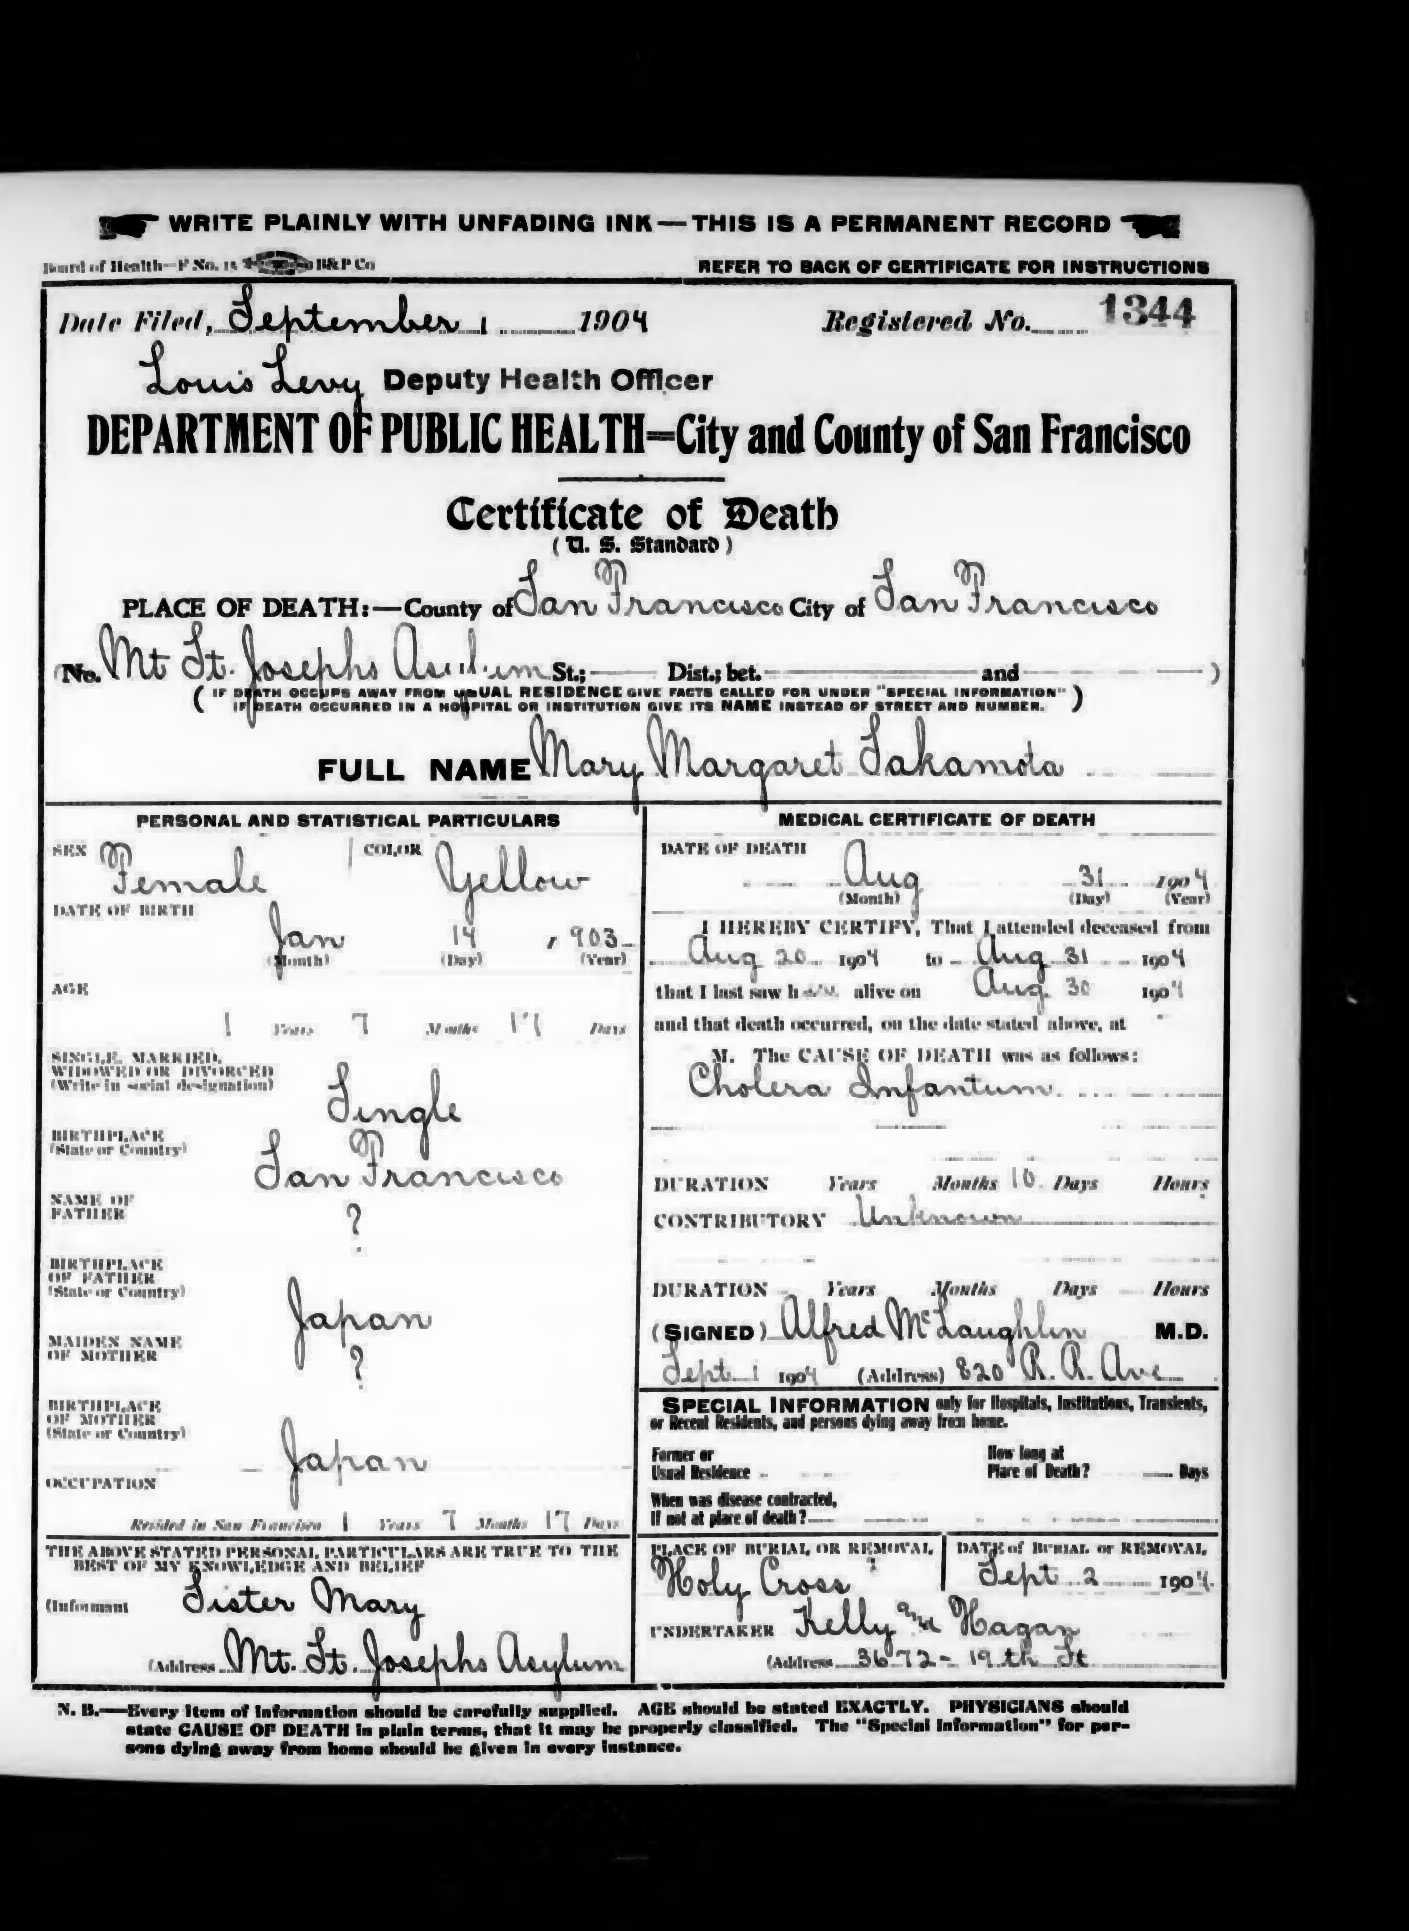 WRITE PLAINLY WITH UNFADING INK—THIS IS A PERMANENT RECORD
Board of Health—F No. 15 B&P Co
REFER TO BACK OF CERTIFICATE FOR INSTRUCTIONS
Date Filed, September 1 1904 Registered No. 1344
Louis Levy Deputy Health Officer
DEPARTMENT OF PUBLIC HEALTH=City and County of San Francisco
Certificate of Death
(U. S. Standard)
PLACE OF DEATH:—County of San Francisco City of San Francisco
(No. Mt St. Josephs Asylum St.; Dist.; bet. and )
(IF DEATH OCCURS AWAY FROM USUAL RESIDENCE GIVE FACTS CALLED FOR UNDER "SPECIAL INFORMATION"
IF DEATH OCCURRED IN A HOSPITAL OR INSTITUTION GIVE ITS NAME INSTEAD OF STREET AND NUMBER.)
FULL NAME Mary Margaret Takamota
PERSONAL AND STATISTICAL PARTICULARS
SEX Female COLOR Yellow
DATE OF BIRTH
Jan 14 , 903
(Month) (Day) (Year)
AGE
1 Years 7 Months 17 Days
SINGLE, MARRIED,
WIDOWED OR DIVORCED
(Write in social designation)
Single
BIRTHPLACE
(State or Country)
San Francisco
NAME OF
FATHER
?
BIRTHPLACE
OF FATHER
(State or Country)
Japan
MAIDEN NAME
OF MOTHER
?
BIRTHPLACE
OF MOTHER
(State or Country)
Japan
OCCUPATION
Resided in San Francisco 1 Years 7 Months 17 Days
THE ABOVE STATED PERSONAL PARTICULARS ARE TRUE TO THE
BEST OF MY KNOWLEDGE AND BELIEF
(Informant Sister Mary
(Address Mt. St. Josephs Asylum
MEDICAL CERTIFICATE OF DEATH
DATE OF DEATH
Aug 31 1904
(Month) (Day) (Year)
I HEREBY CERTIFY, That I attended deceased from
Aug 20 1904 to Aug 31 1904
that I last saw h alive on Aug. 30 1904
and that death occurred, on the date stated above, at
M. The CAUSE OF DEATH was as follows:
Cholera Infantum
DURATION Years Months 10 Days Hours
CONTRIBUTORY Unknown
DURATION Years Months Days Hours
(SIGNED) Alfred McLaughlin M.D.
Sept 1 1904 (Address) 820 R. R. Ave
SPECIAL INFORMATION only for Hospitals, Institutions, Transients,
or Recent Residents, and persons dying away from home.
Former or
Usual Residence
How long at
Place of Death? Days
When was disease contracted,
If not at place of death?
PLACE OF BURIAL OR REMOVAL
Holy Cross
DATE of BURIAL or REMOVAL
Sept 2 1904
UNDERTAKER Kelly and Hagan
(Address 3672-19th St
N. B.—Every item of information should be carefully supplied. AGE should be stated EXACTLY. PHYSICIANS should
state CAUSE OF DEATH in plain terms, that it may be properly classified. The "Special Information" for per-
sons dying away from home should be given in every instance.